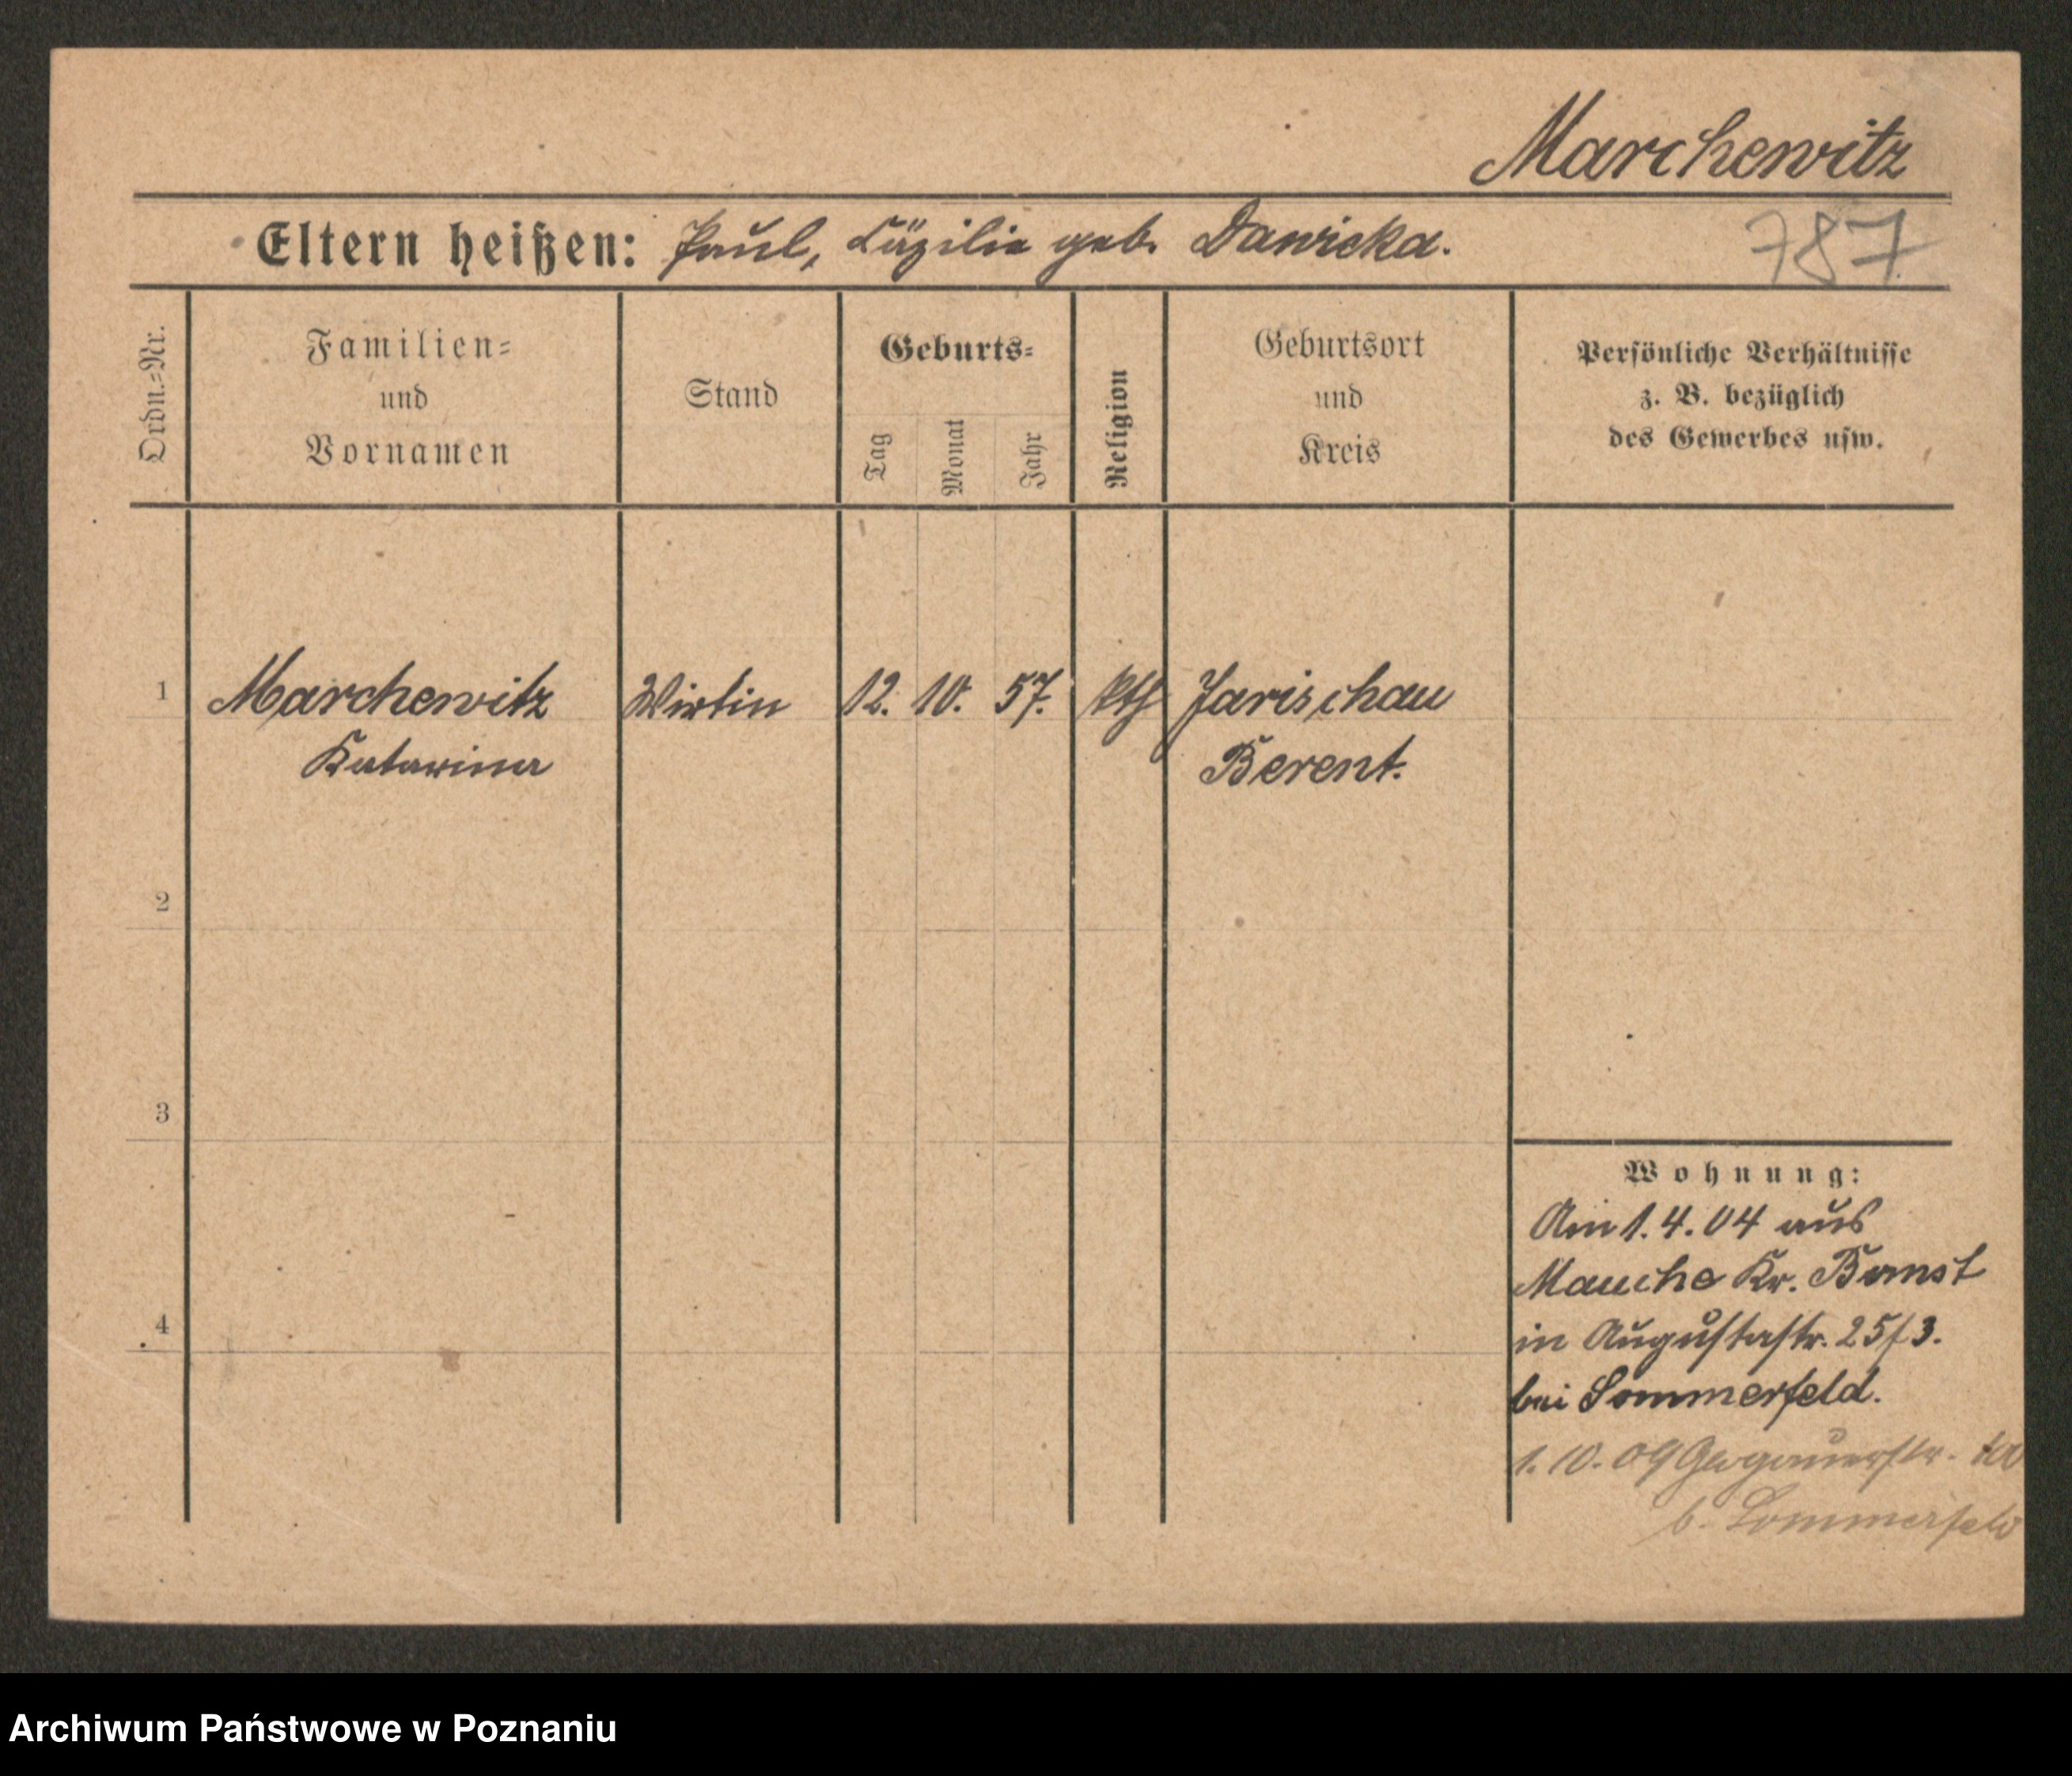 Marchewitz
Eltern heißen: Paul, Cäzilie geb. Dawicka.
787
Ordn.=Nr.
Familien=
und
Vornamen
Stand
Geburts=
Tag
Monat
Jahr
Religion
Geburtsort
und
Kreis
Persönliche Verhältnisse
z. B. bezüglich
des Gewerbes usw.
1 Marchewitz Wirtin 12. 10. 57. kth Jarischau
Katarina Berent.
2
3
4
Wohnung:
Am 1.4.04 aus
Mauche Kr. Bomst
in Augustastr. 25/3.
bei Sommerfeld.
1.10.09 Glogauerstr.
b. Sommerfeld
Archiwum Państwowe w Poznaniu